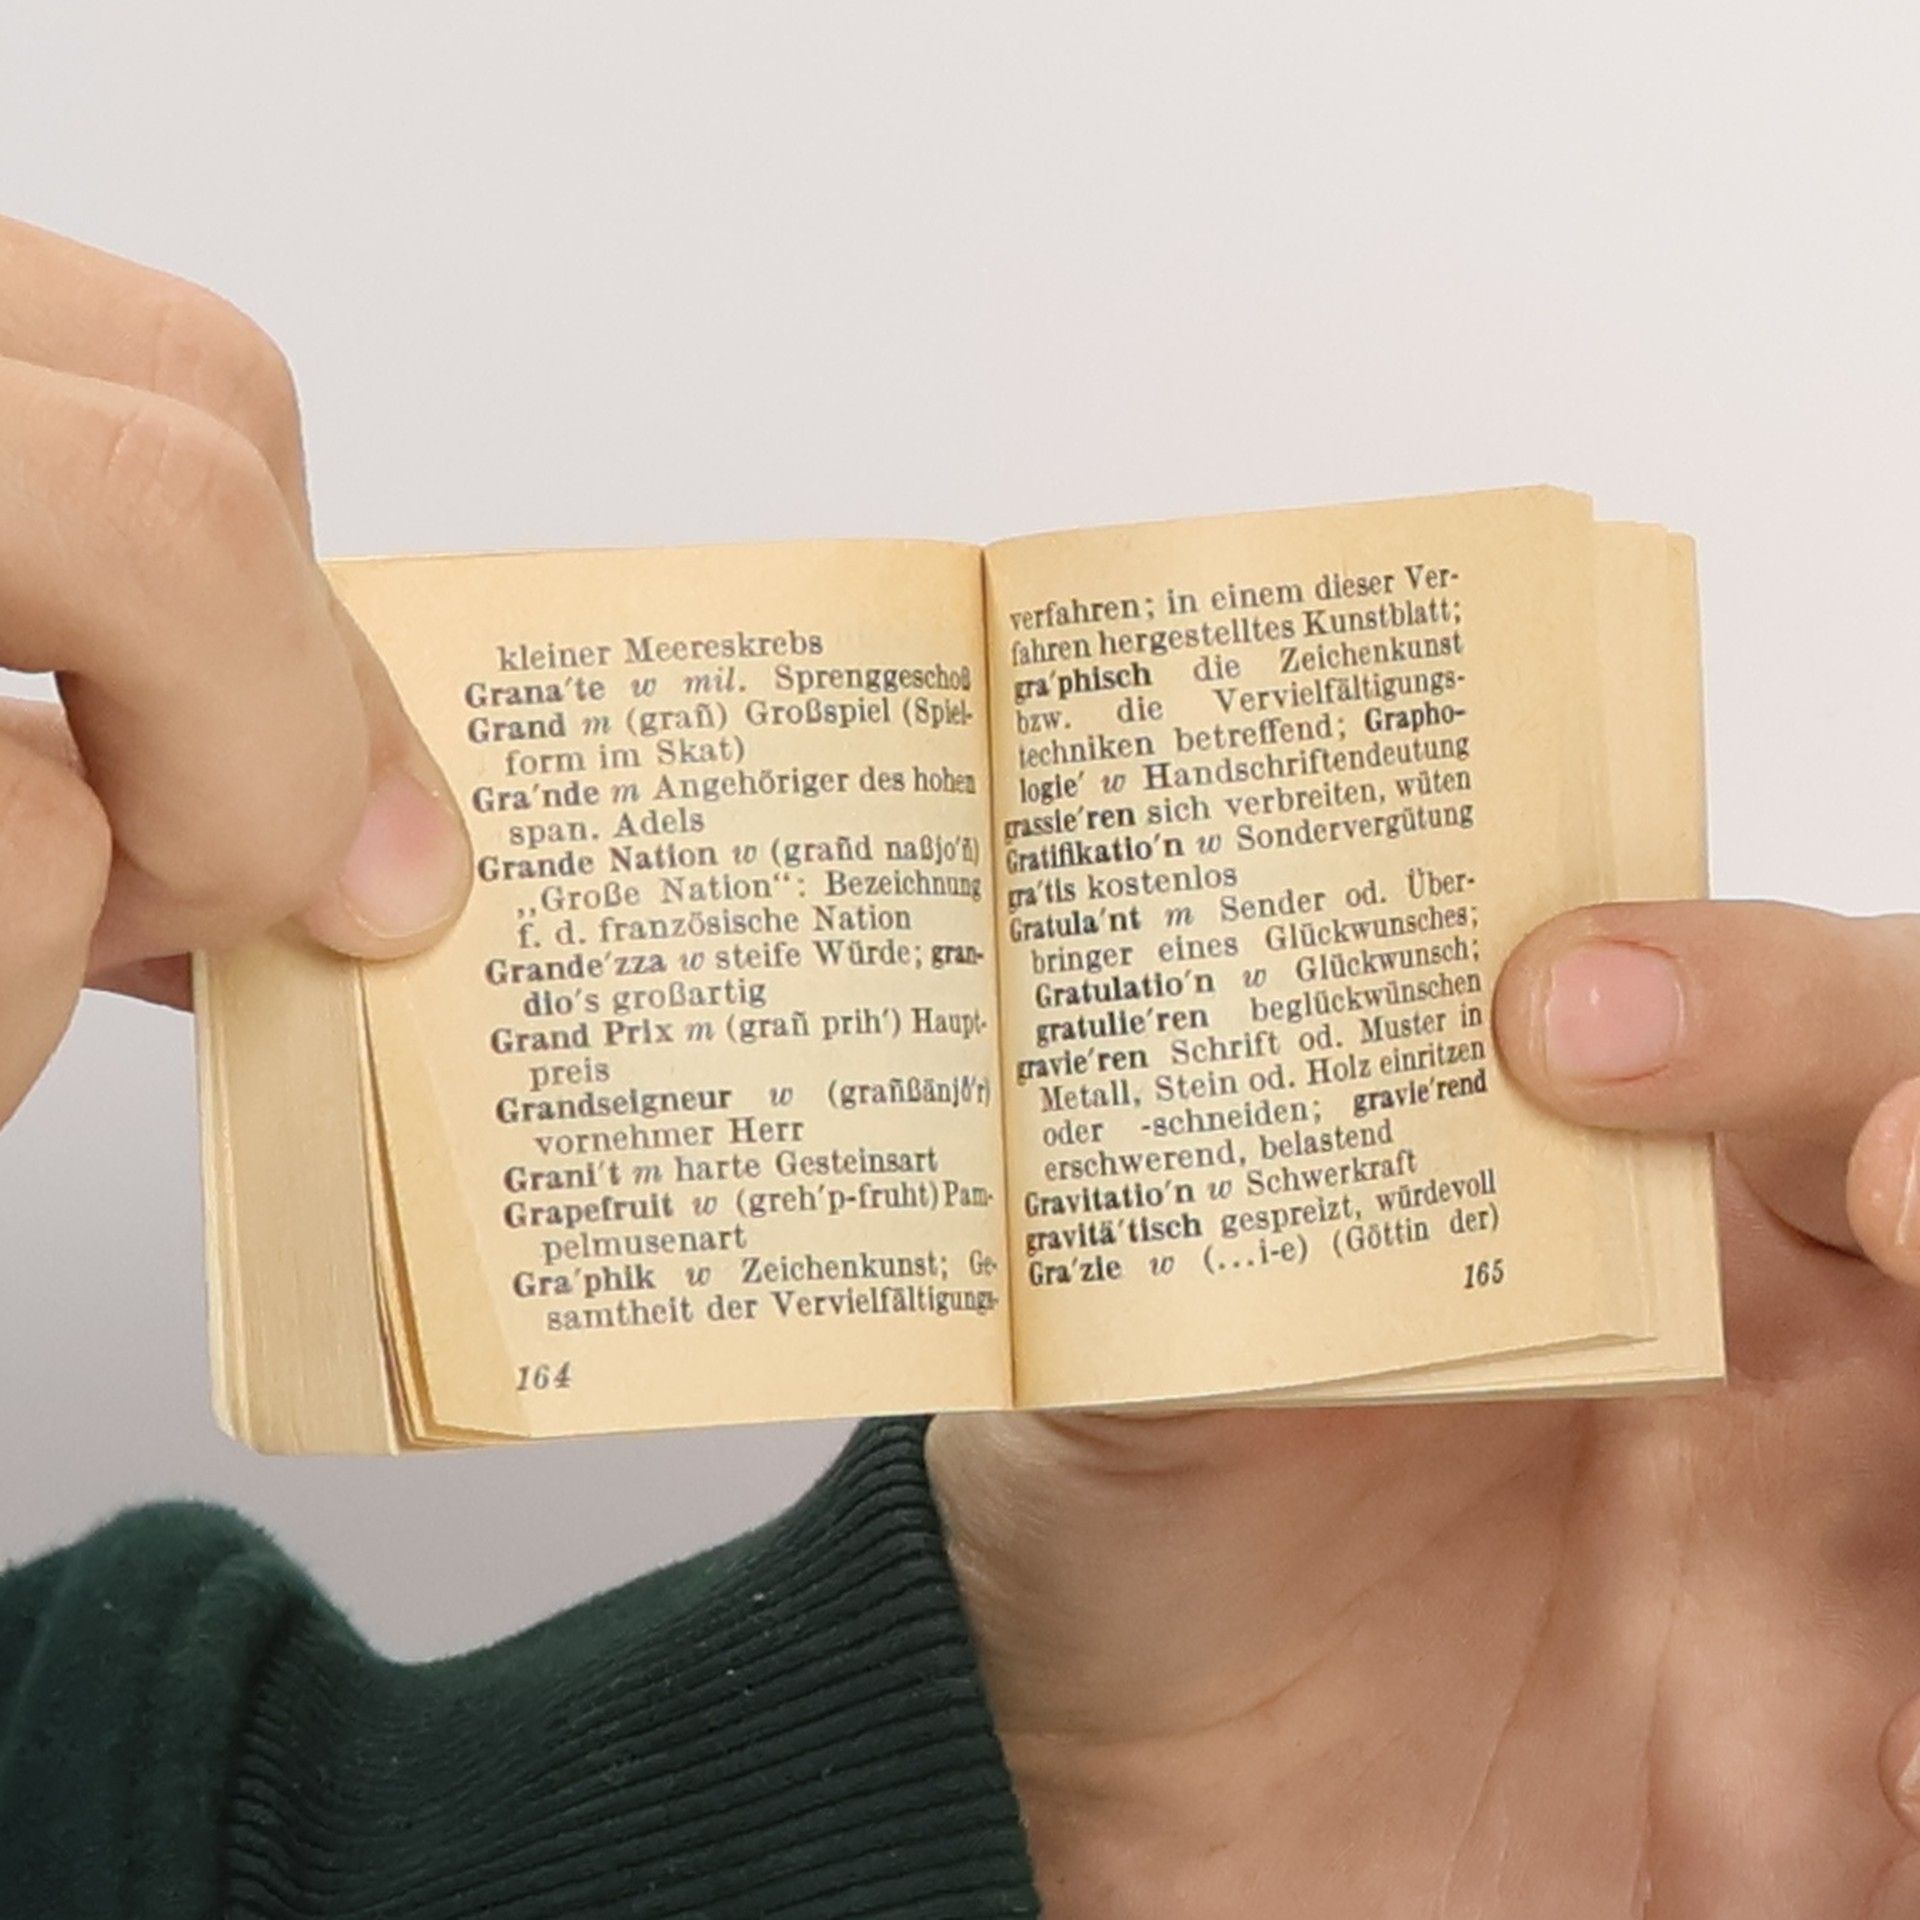 kleiner Meereskrebs
Grana′te w mil. Sprenggeschoß
Grand m (grañ) Großspiel (Spiel-
form im Skat)
Gra′nde m Angehöriger des hohen
span. Adels
Grande Nation w (grañd naßjo′ñ)
„Große Nation“: Bezeichnung
f. d. französische Nation
Grande′zza w steife Würde; gran-
dio′s großartig
Grand Prix m (grañ prih′) Haupt-
preis
Grandseigneur w (grañßänjö′r)
vornehmer Herr
Grani′t m harte Gesteinsart
Grapefruit w (greh′p-fruht) Pam-
pelmusenart
Gra′phik w Zeichenkunst; Ge-
samtheit der Vervielfältigungs-
164
verfahren; in einem dieser Ver-
fahren hergestelltes Kunstblatt;
gra′phisch die Zeichenkunst
bzw. die Vervielfältigungs-
techniken betreffend; Grapho-
logie′ w Handschriftendeutung
grassie′ren sich verbreiten, wüten
Gratifikatio′n w Sondervergütung
gra′tis kostenlos
Gratula′nt m Sender od. Über-
bringer eines Glückwunsches;
Gratulatio′n w Glückwunsch;
gratulie′ren beglückwünschen
gravie′ren Schrift od. Muster in
Metall, Stein od. Holz einritzen
oder -schneiden; gravie′rend
erschwerend, belastend
Gravitatio′n w Schwerkraft
gravitä′tisch gespreizt, würdevoll
Gra′zie w (...i-e) (Göttin der)
165